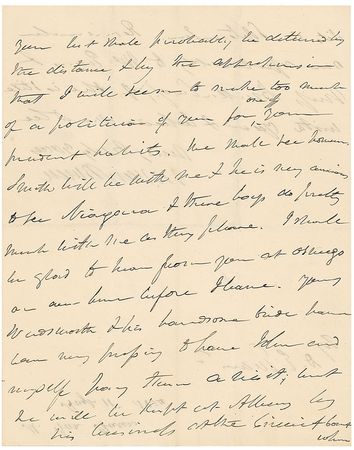 You but shall probably be detained by
the distance, & by the apprehension
that I will seem to make too much
of a politician of you for your
one of
prudent habits. We shall see however
Smith will be with me & he is very anxious
to see Niagara & these boys do pretty
much with me as they please. I shall
be glad to hear from you at Oswego
or even here before I leave. Young
Wadsworth & his handsome bride have
been very pressing to have John and
myself pay them a visit, but
he will be kept at Albany by
his business at the Circuit Court
where